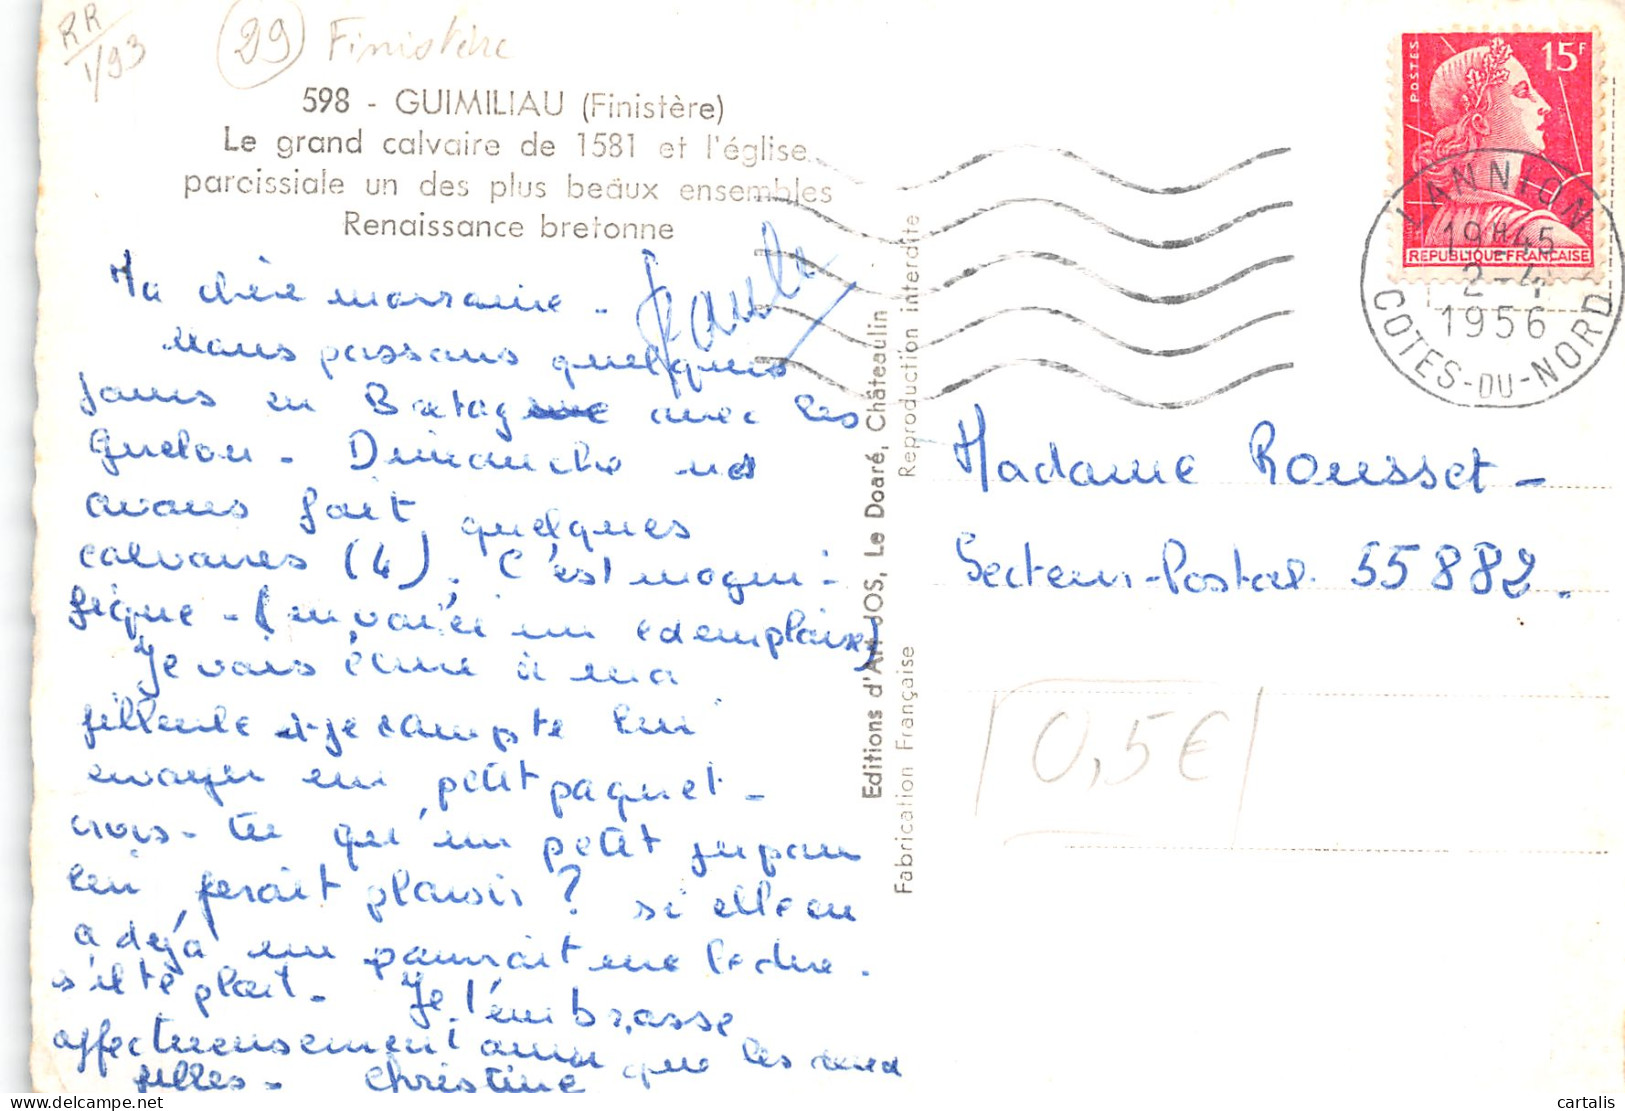 RR
1/93
29 Finistère
598 - GUIMILIAU (Finistère)
Le grand calvaire de 1581 et l'église
parcissiale un des plus beaux ensembles
Renaissance bretonne
Ma chère marraine -
Nous passons quelques
jours en Bretagne avec les
Guelou - Dimanche ns
avons fait quelques
calvaires (4). C'est magni-
fique - (en voici un exemplaire)
Je vais écrire à ma
filleule et je compte lui
envoyer un petit paquet -
crois-tu qu'un petit jupon
lui ferait plaisir? si elle en
a déjà un pourrait me le dire.
s'il te plait - Je t'embrasse
affectueusement ainsi que les
filles - Christine
Editions d'Art JOS, Le Doaré, Châteaulin
Reproduction interdite
Fabrication Française
POSTES
15F
REPUBLIQUE FRANÇAISE
LANNION
19H45
2-4
1956
COTES-DU-NORD
Madame Rousset -
Secteur-Postal 55882.
0,5€
cartalis